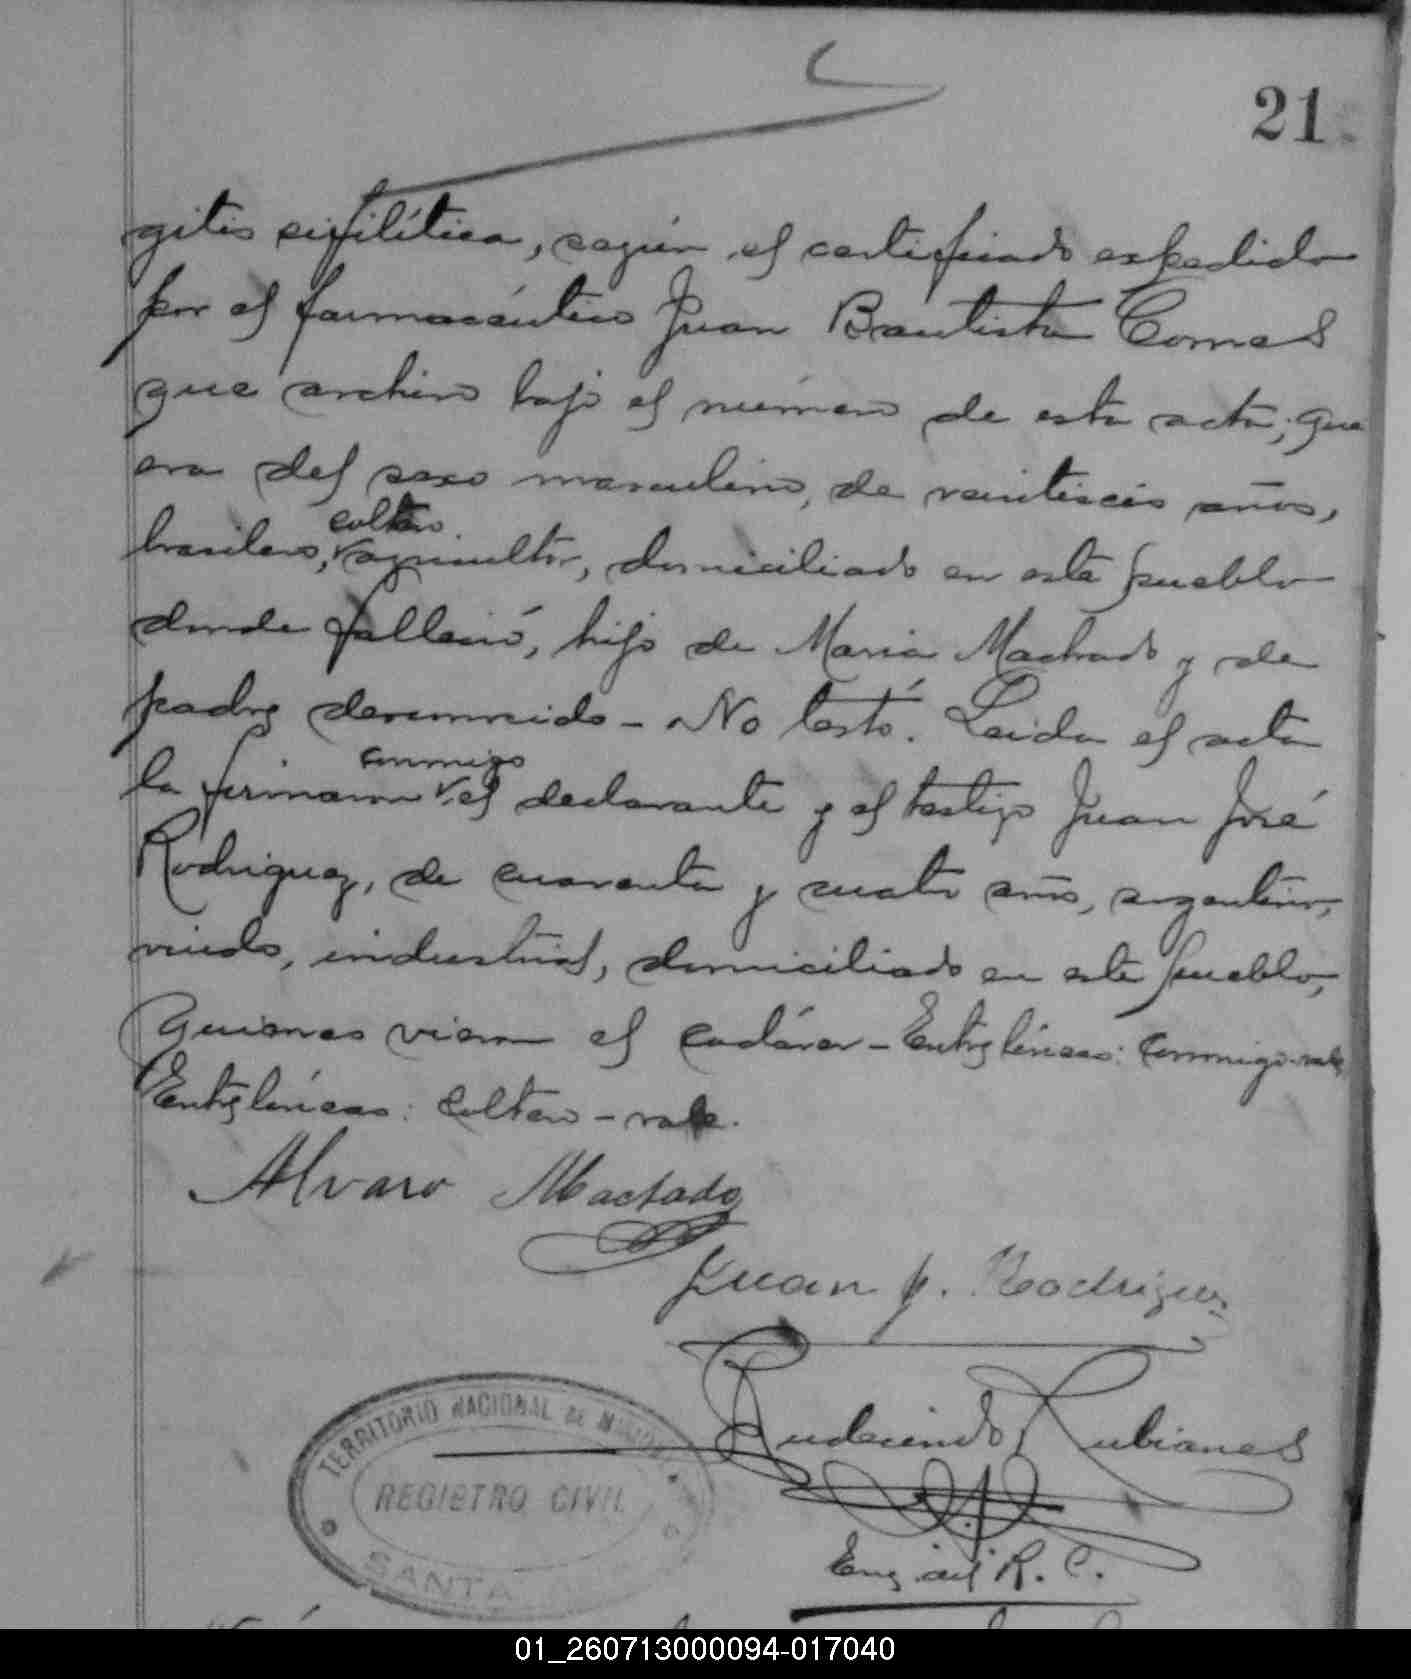 21
gitis sifilítica, según el certificado expedido
por el farmacéutico Juan Bautista Comas
que archivo bajo el número de esta acta; que
era del sexo masculino, de veintiseis años,
soltero
brasilero, agricultor, domiciliado en este pueblo
donde falleció, hijo de Maria Machado y de
padre desconocido - No testó. Leida el acta
conmigo
la firmaron el declarante y el testigo Juan José
Rodriguez, de cuarenta y cuatro años, argentino,
viudo, industrial, domiciliado en este pueblo,
quienes vieron el cadáver - Entrelíneas: conmigo - vale
Entrelíneas: soltero - vale.
Alvaro Machado
Juan J. Rodriguez
Rudecindo Rubianes
TERRITORIO NACIONAL DE MISIONES
REGISTRO CIVIL
SANTA
Enc. del R. C.
01_260713000094-017040